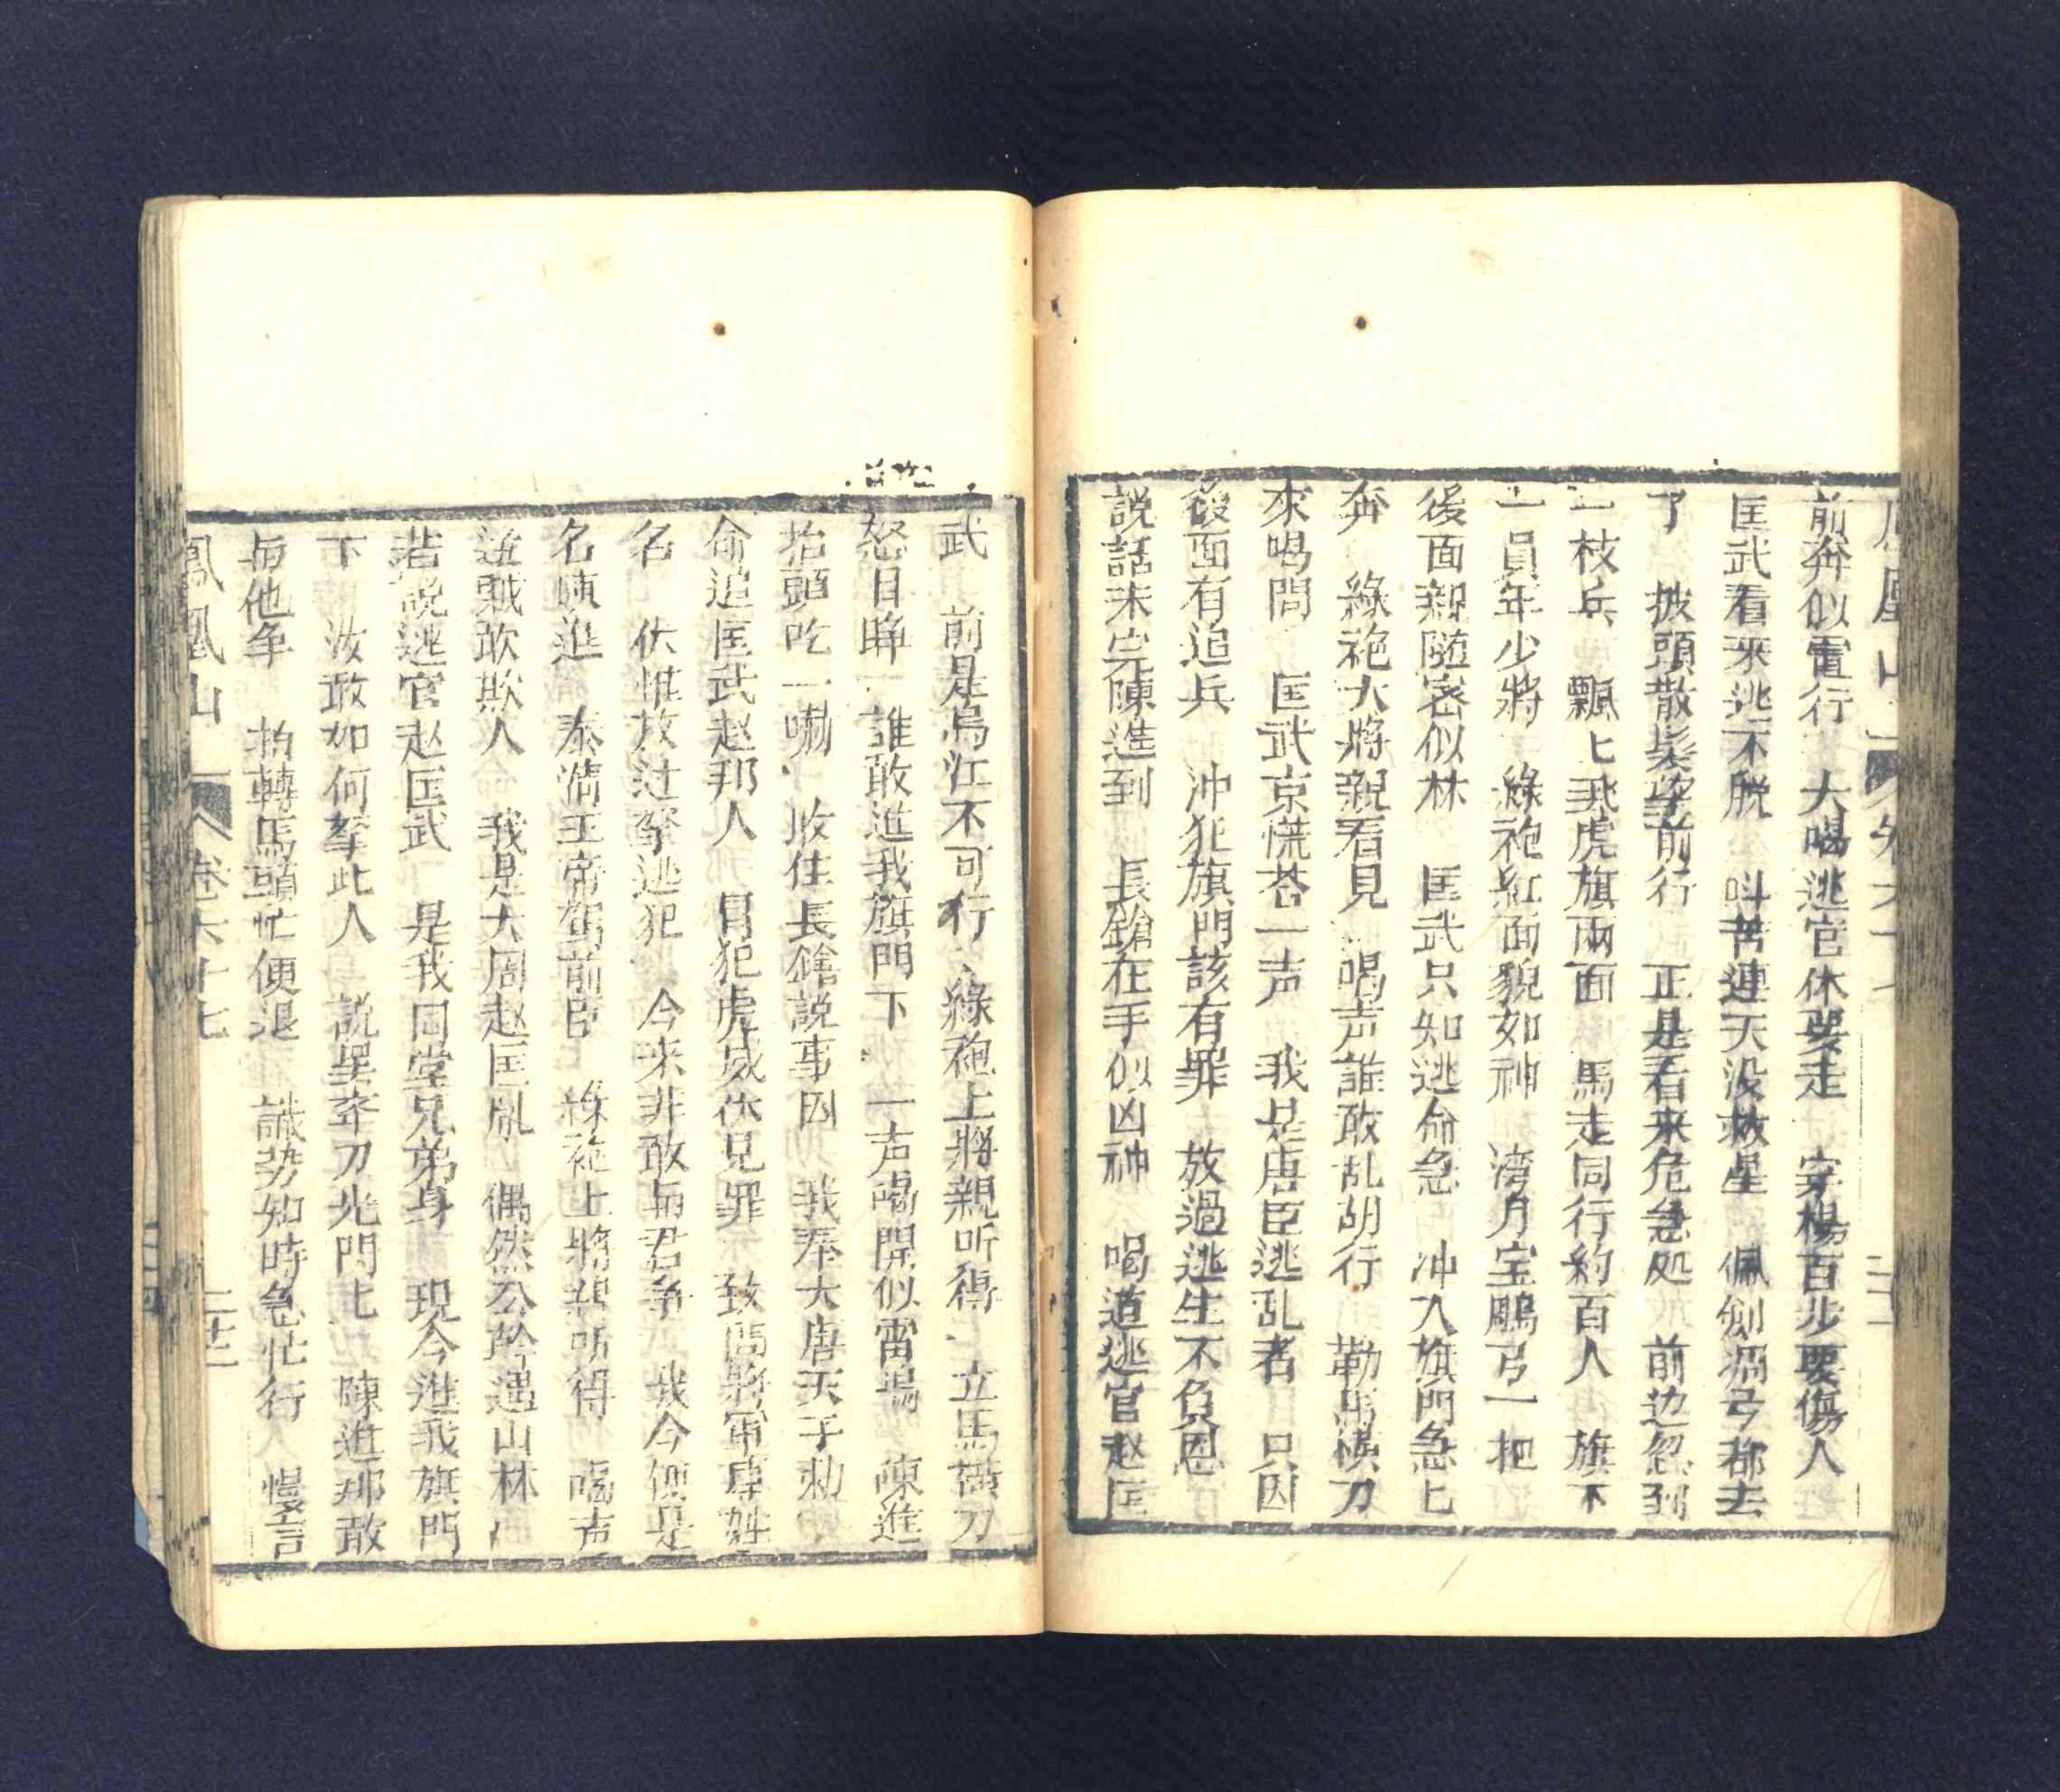 前奔似雷行　大喝逃官休要走　穿楊百步要傷人
匡武看來逃不脱　呌苦連天没救星　佩劍彎弓都去
了　披頭散髮望前行　正是看来危急処　前边忽到
一枝兵　飄匕飛虎旗兩面　馬走同行約百人　旗下
一員年少將　綠袍紅面貌如神　湾月宝鵰弓一把
後面親隨密似林　匡武只知逃命急　冲入旗門急匕
奔　綠袍大將親看見　喝声誰敢乱胡行　勒馬横刀
來喝問　匡武京慌荅一声　我是唐臣逃乱者　只因
後面有追兵　冲犯旗門該有罪　放過逃生不負恩
説話未完陳進到　長鎗在手似凶神　喝道逃官赵匡
武　前是烏江不可行　綠袍上將親听得　立馬横刀
怒目睁　誰敢進我旗門下　一声喝開似雷鳴　陳進
抬頭吃一嚇　收住長鎗説事因　我奉大唐天子勅
命追匡武赵邦人　冒犯虎威休見罪　致問將軍尊姓
名　伏惟放过拏逃犯　今來非敢与君争　我今便是
名陳進　奏淸王帝駕前臣　綠袍上將親听得　喝声
逆賊敢欺人　我是大周赵匡胤　偶然公幹過山林
若説逃官赵匡武　是我同堂兄弟身　現今進我旗門
下　汝敢如何拏此人　説罢奔刀光閃匕　陳進那敢
与他争　抬轉馬頭忙便退　識势知時急忙行　慢言
鳳凰山　卷六十七　二十二